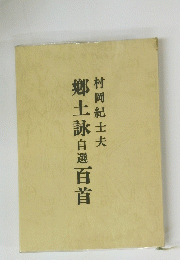 村岡紀士夫
郷土詠自選百首